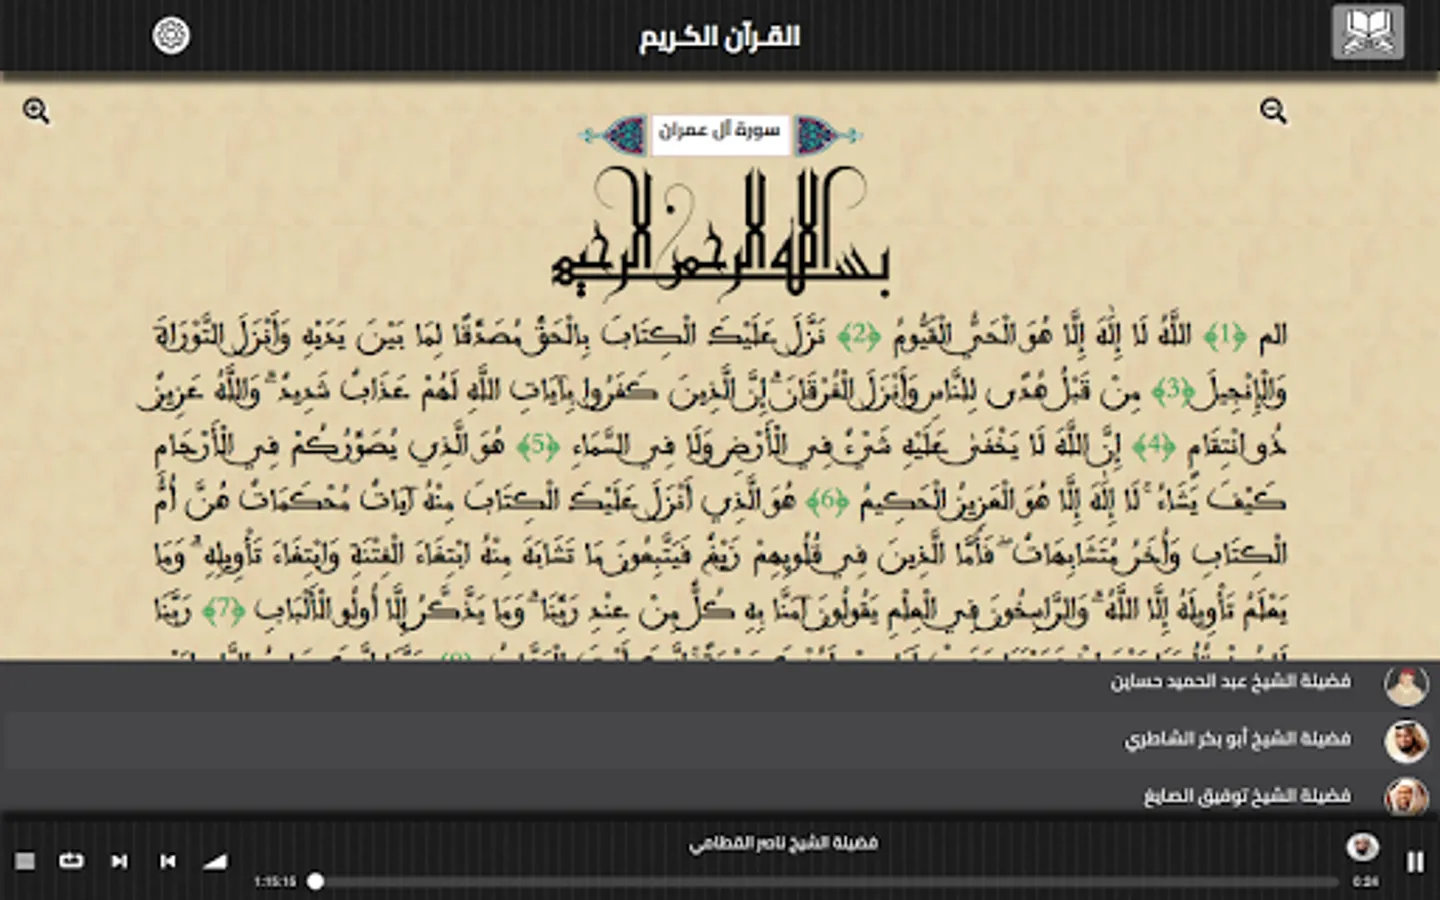 القرآن الكريم
سورة آل عمران
بسم الله الرحمن الرحيم
الم ﴿1﴾ اللَّهُ لَا إِلَٰهَ إِلَّا هُوَ الْحَيُّ الْقَيُّومُ ﴿2﴾ نَزَّلَ عَلَيْكَ الْكِتَابَ بِالْحَقِّ مُصَدِّقًا لِمَا بَيْنَ يَدَيْهِ وَأَنْزَلَ التَّوْرَاةَ
وَالْإِنْجِيلَ ﴿3﴾ مِنْ قَبْلُ هُدًى لِلنَّاسِ وَأَنْزَلَ الْفُرْقَانَ ۗ إِنَّ الَّذِينَ كَفَرُوا بِآيَاتِ اللَّهِ لَهُمْ عَذَابٌ شَدِيدٌ ۗ وَاللَّهُ عَزِيزٌ
ذُو انْتِقَامٍ ﴿4﴾ إِنَّ اللَّهَ لَا يَخْفَىٰ عَلَيْهِ شَيْءٌ فِي الْأَرْضِ وَلَا فِي السَّمَاءِ ﴿5﴾ هُوَ الَّذِي يُصَوِّرُكُمْ فِي الْأَرْحَامِ
كَيْفَ يَشَاءُ ۚ لَا إِلَٰهَ إِلَّا هُوَ الْعَزِيزُ الْحَكِيمُ ﴿6﴾ هُوَ الَّذِي أَنْزَلَ عَلَيْكَ الْكِتَابَ مِنْهُ آيَاتٌ مُحْكَمَاتٌ هُنَّ أُمُّ
الْكِتَابِ وَأُخَرُ مُتَشَابِهَاتٌ ۖ فَأَمَّا الَّذِينَ فِي قُلُوبِهِمْ زَيْغٌ فَيَتَّبِعُونَ مَا تَشَابَهَ مِنْهُ ابْتِغَاءَ الْفِتْنَةِ وَابْتِغَاءَ تَأْوِيلِهِ ۗ وَمَا
يَعْلَمُ تَأْوِيلَهُ إِلَّا اللَّهُ ۗ وَالرَّاسِخُونَ فِي الْعِلْمِ يَقُولُونَ آمَنَّا بِهِ كُلٌّ مِنْ عِنْدِ رَبِّنَا ۗ وَمَا يَذَّكَّرُ إِلَّا أُولُو الْأَلْبَابِ ﴿7﴾ رَبَّنَا
فضيلة الشيخ عبد الحميد حساين
فضيلة الشيخ أبو بكر الشاطري
فضيلة الشيخ توفيق الصايغ
فضيلة الشيخ ناصر القطامي
1:15:15
0:24